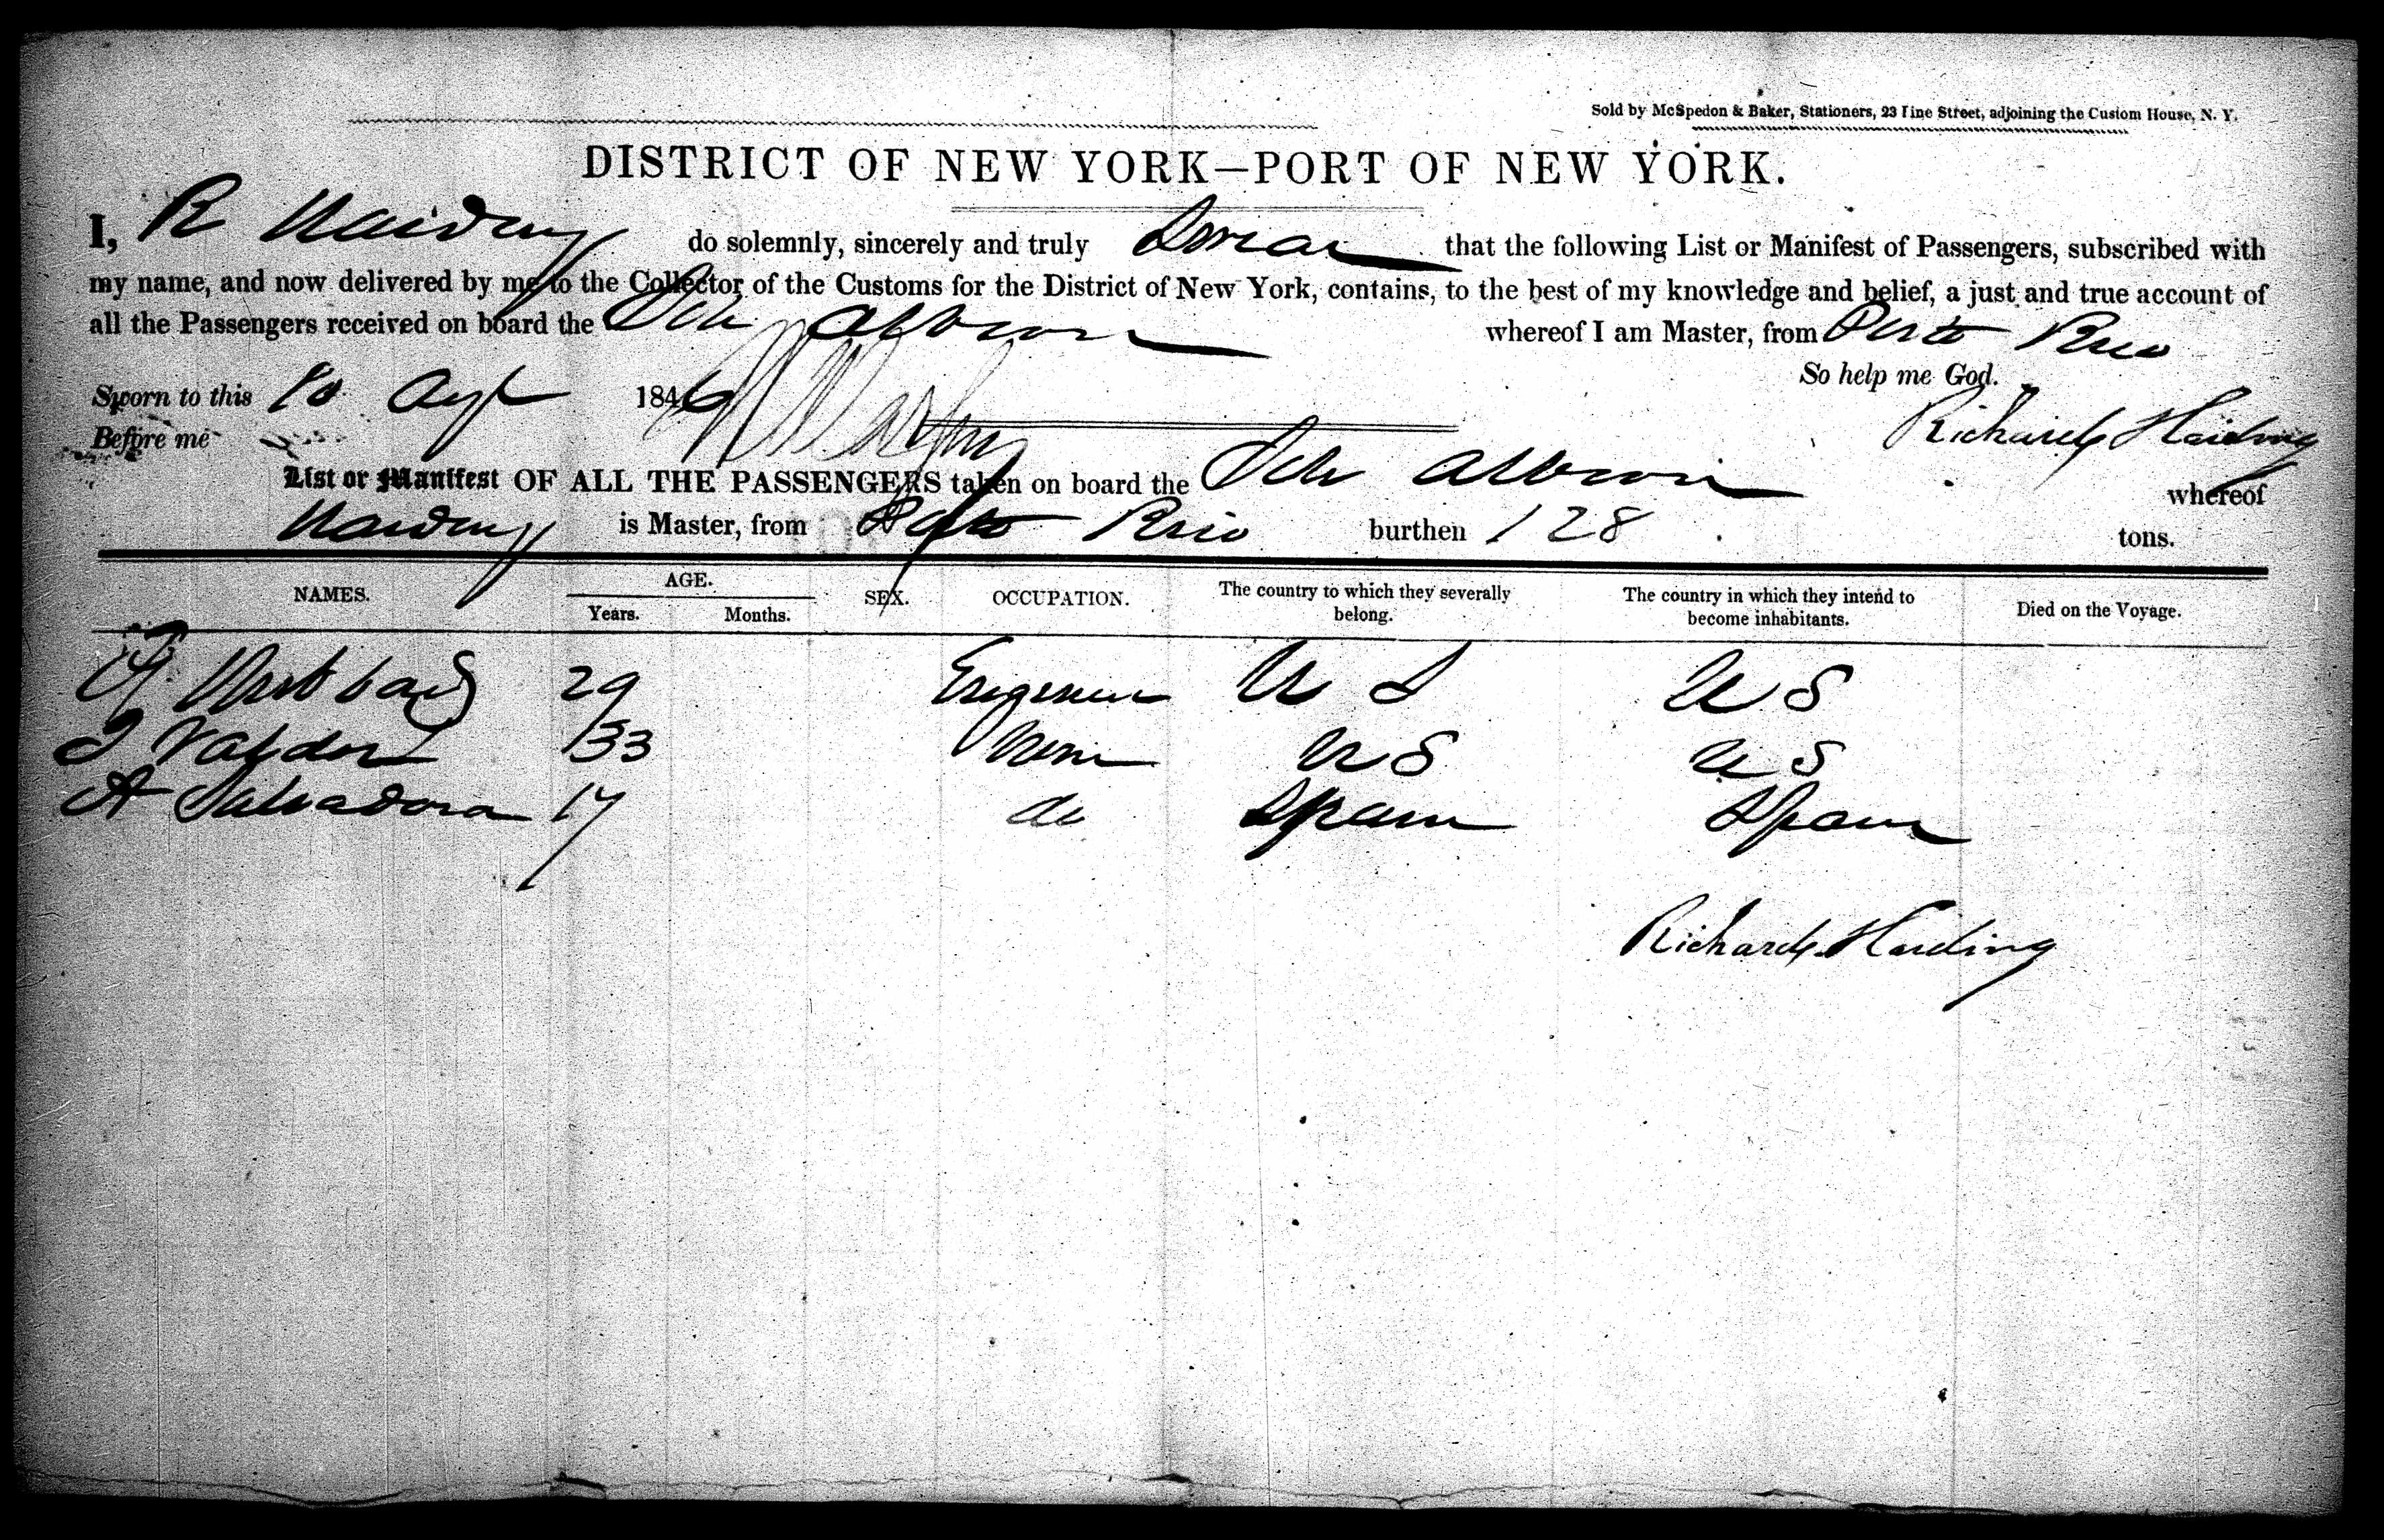 Sold by McSpedon & Baker, Stationers, 23 Pine Street, adjoining the Custom House, N. Y.
DISTRICT OF NEW YORK—PORT OF NEW YORK.
I, R Harding do solemnly, sincerely and truly Swear that the following List or Manifest of Passengers, subscribed with
my name, and now delivered by me to the Collector of the Customs for the District of New York, contains, to the best of my knowledge and belief, a just and true account of
all the Passengers received on board the Sch Albion whereof I am Master, from Porto Rico
So help me God.
Sworn to this 10 1846
Before me Richard Harding
List or Manifest OF ALL THE PASSENGERS taken on board the Sch Albion whereof
Harding is Master, from Porto Rico burthen 128 tons.
NAMES. AGE. SEX. OCCUPATION. The country to which they severally belong. The country in which they intend to become inhabitants. Died on the Voyage.
Years. Months.
29 Engineer U S U S
33 None U S U S
A Salvadora 17 do Spain Spain
Richard Harding